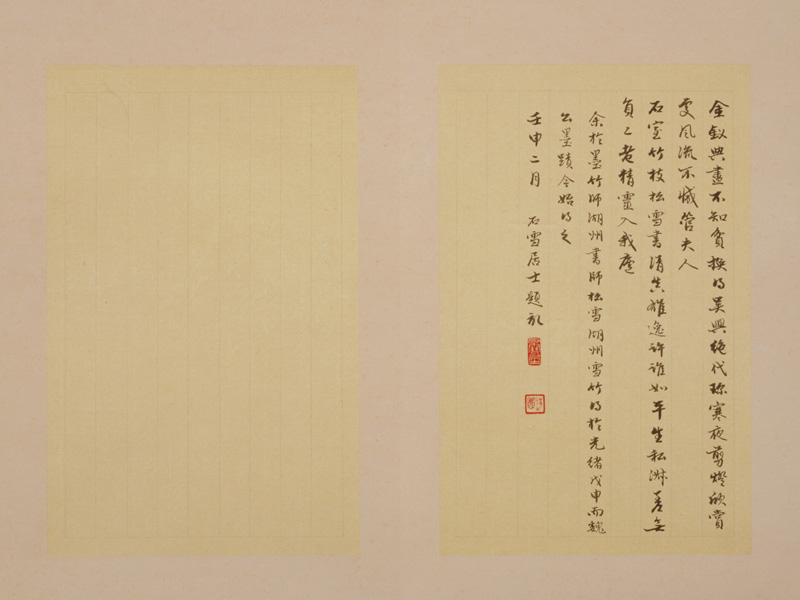 金釵典盡不知貧換得吳興絕代珍寒夜剪燈欣賞
處風流不減管夫人
石室竹枝松雪書清真雄逸許誰如平生私淑差無
負二老精靈入我廬
余於墨竹師湖州書師松雪湖州雪竹得於光緒戊申而魏
公墨蹟今始得之
壬申二月 石雪居士題記